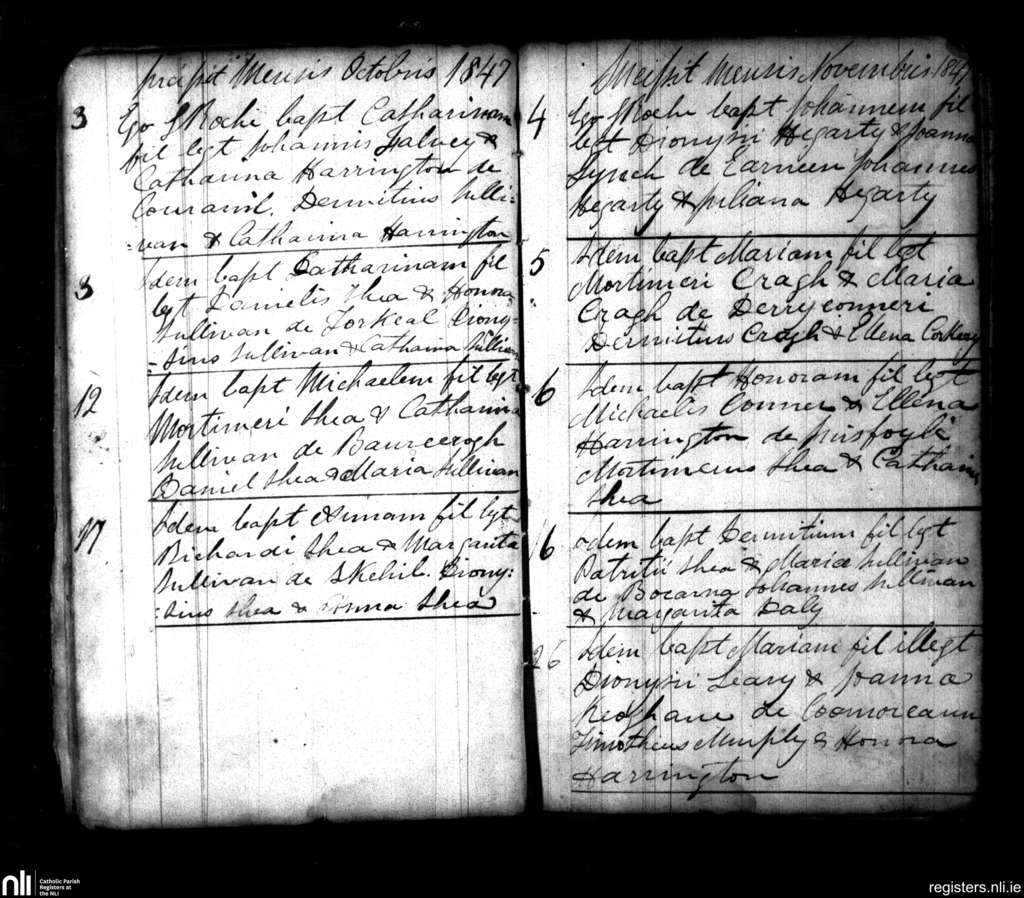 Incipit Mensis Octobris 1847
3 Ego G Roche bapt Catharinam
fil lgt Johannis Falvey &
Catharina Harrington de
Dermitius Sulli-
-van & Catharina Harrington
3 Idem bapt Catharinam fil
lgt Danielis Shea & Honora
Sullivan de Diony-
-sius Sullivan & Catharina Sullivan
12 Idem bapt Michaelem fil lgt
Mortimeri Shea & Catharina
Sullivan de
Daniel Shea & Maria Sullivan
17 Idem bapt fil lgt
Richardi Shea & Margarita
Sullivan de Skehil. Diony:
:sius Shea & Anna Shea
Incipit Mensis Novembris 1847
4 Ego G Roche bapt Johannem fil
lgt Dionysii Hegarty & Joanna
Lynch de Earneen Johannes
Hegarty & Juliana Hegarty
5 Idem bapt Mariam fil lgt
Mortimeri Cragh & Maria
Cragh de Derryconneri
Dermitius Cragh & Ellena Corkery
6 Idem bapt Honoram fil lgt
Michaelis Conner & Ellena
Harrington de
Mortimerus Shea & Catharina
Shea
16 Idem bapt Dermitium fil lgt
Patritii Shea & Maria Sullivan
de Bocarna Johannes Sullivan
& Margarita Daly
26 Idem bapt Mariam fil illegt
Dionysii Leary & Joanna
Keoghane de Coomoreann
Timotheus Murphy & Honora
Harrington
nli
Catholic Parish
Registers at
the NLI
registers.nli.ie